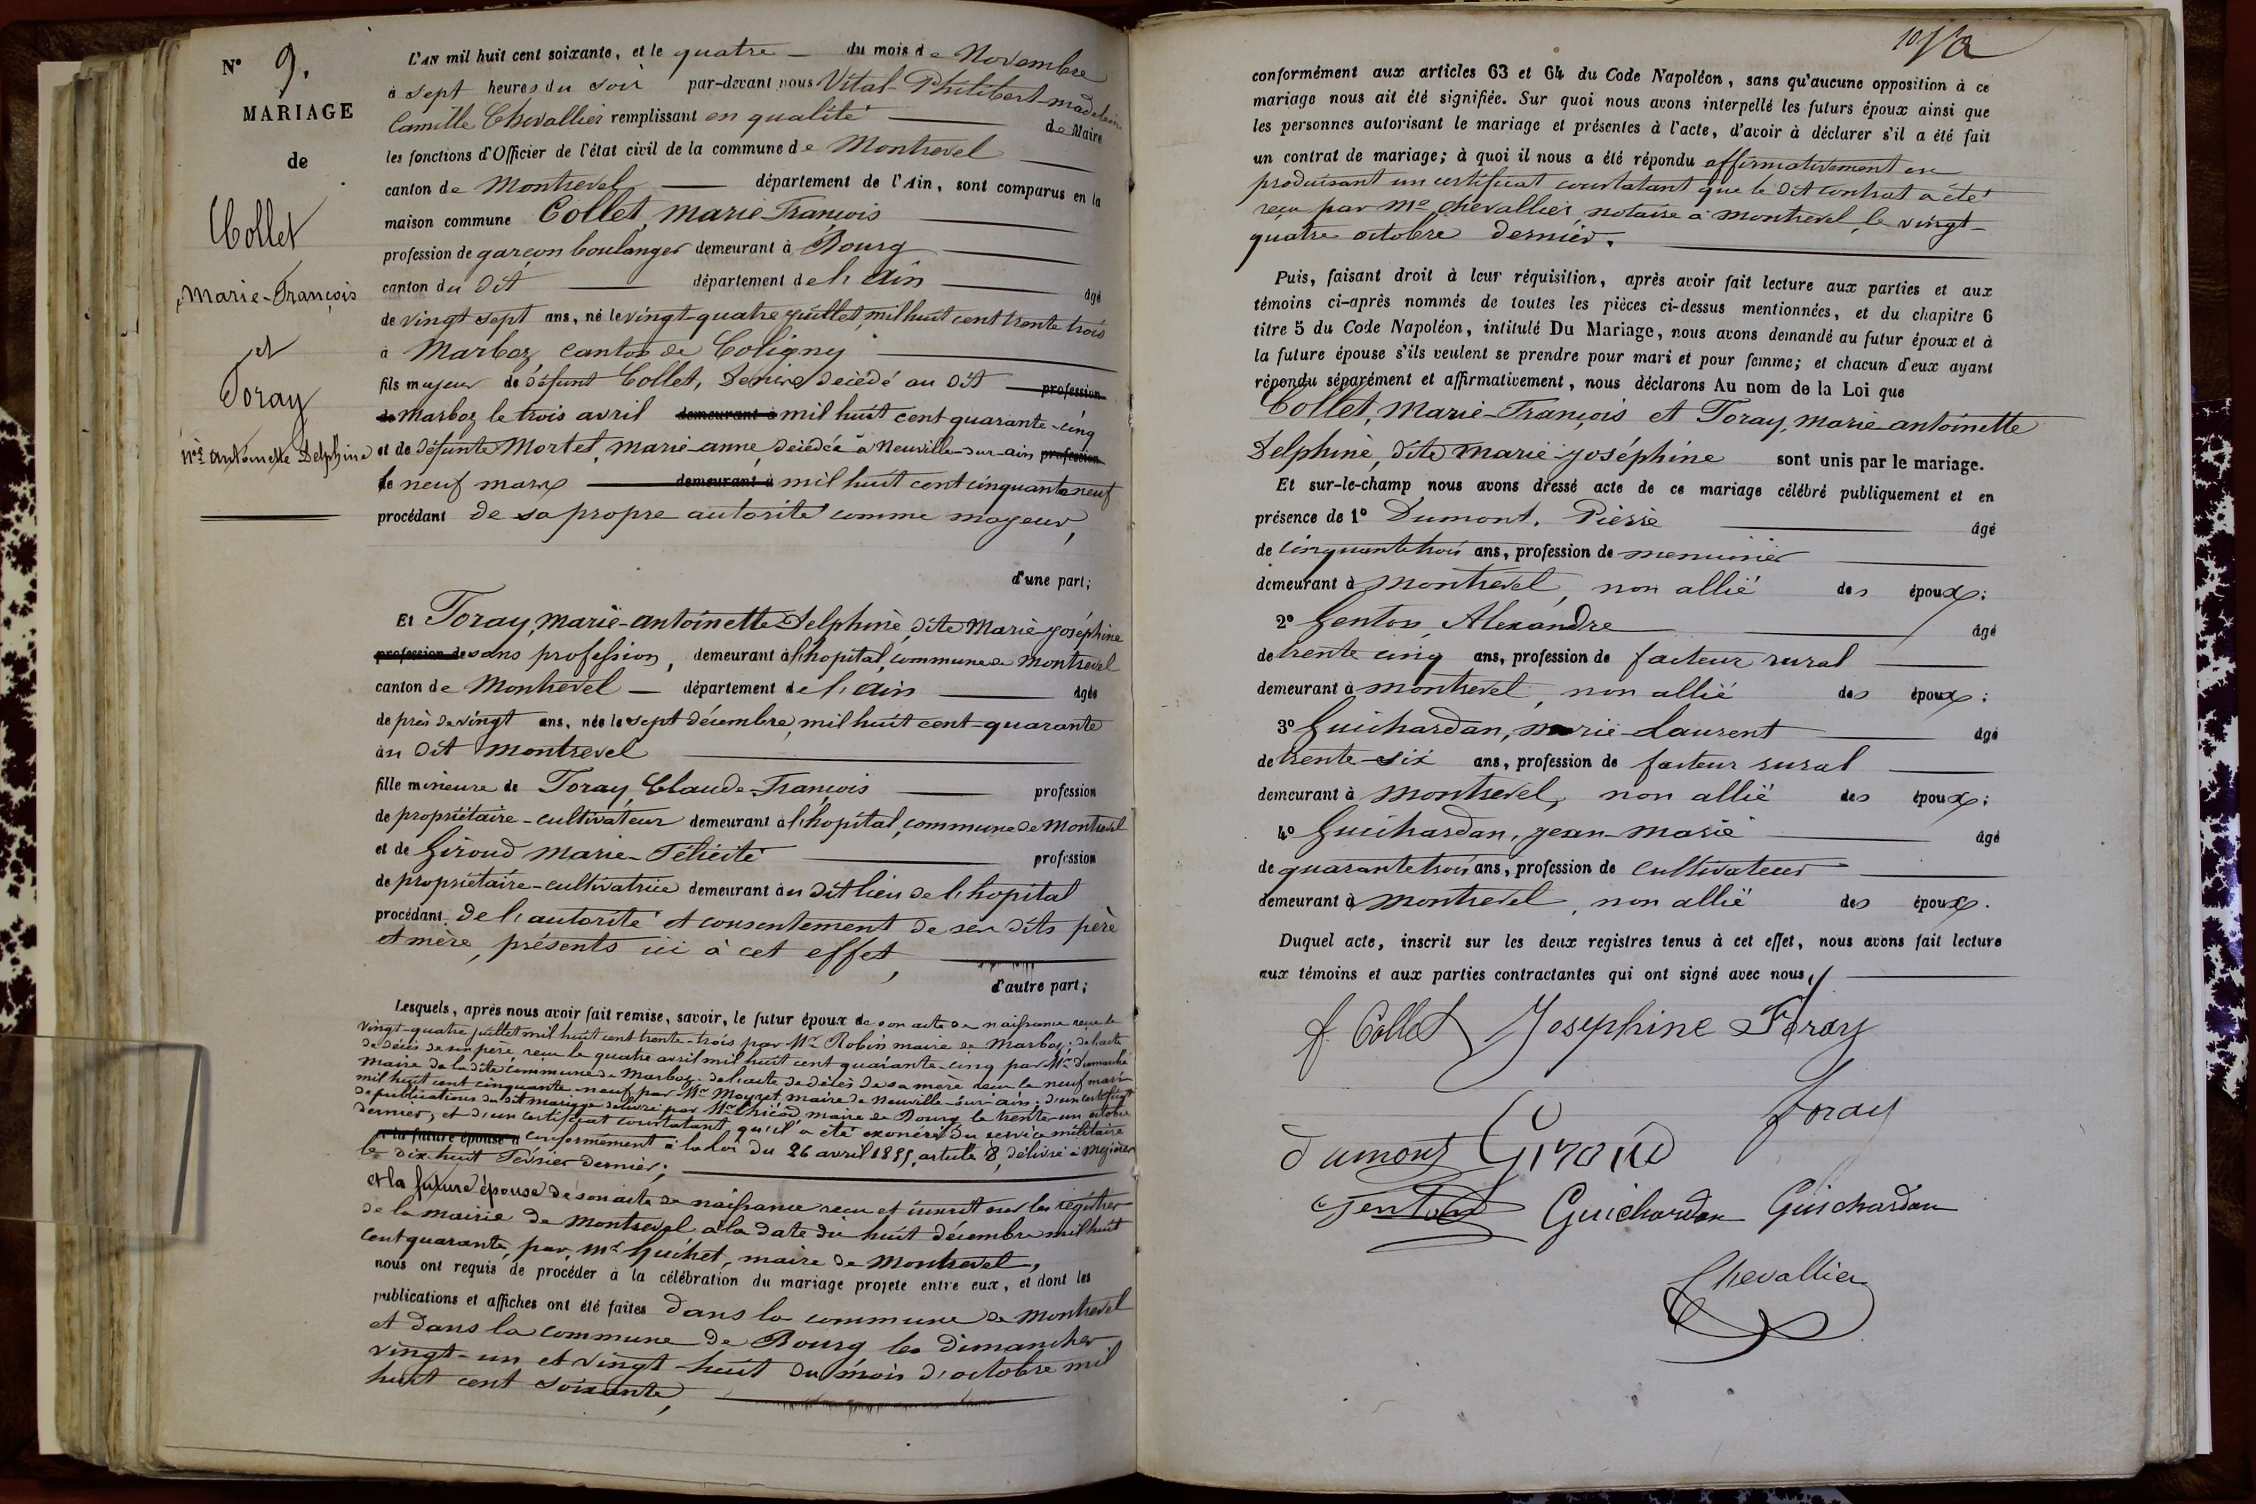 N° 9.
MARIAGE
de
Collet
Marie-François
et
Foray
Mie antoinette Delphine
L'AN mil huit cent soixante, et le quatre du mois de Novembre
à sept heures du soir par-devant nous Vital-Philibert-madeleine
Camille Chevallier remplissant en qualité de Maire
les fonctions d'Officier de l'état civil de la commune de Montrevel
canton de Montrevel département de l'Ain, sont comparus en la
maison commune Collet, Marie-François
profession de garçon boulanger demeurant à Bourg
canton du dit département de l'ain âgé
de vingt sept ans, né le vingt-quatre juillet, mil huit cent trente trois
à Marboz canton de Coligny
fils majeur de défunt Collet, Denis, décédé au dit profession
de Marboz le trois avril demeurant à mil huit cent quarante-cinq
et de défunte Mortet, marie-anne, décédée à Neuville-sur-ain profession
le neuf mars demeurant à mil huit cent cinquante neuf
procédant de sa propre autorité comme majeur,
d'une part;
Et Foray, marie-antoinette Delphine, dite Marie joséphine
profession de sans profession, demeurant à l'hopital, commune de Montrevel
canton de Montrevel département de l'ain âgée
de près de vingt ans, née le sept décembre, mil huit cent-quarante
au dit Montrevel
fille mineure de Foray, Claude-François profession
de propriétaire-cultivateur demeurant à l'hopital, commune de Montrevel
et de Giroud Marie-Félicité profession
de propriétaire-cultivatrice demeurant au dit lieu de l'hopital
procédant de l'autorité et consentement de ses dits père
et mère, présents ici à cet effet,
d'autre part;
Lesquels, après nous avoir fait remise, savoir, le futur époux de son acte de naissance reçu le
vingt-quatre juillet mil huit cent trente-trois par Mr Robin maire de Marboz; de l'acte
de décès de son père reçu le quatre avril mil huit cent quarante-cinq par Mr Dumarché
maire de la dite commune de Marboz; de l'acte de décès de sa mère reçu le neuf mars
mil huit cent cinquante-neuf par Mr Moyret, maire de Neuville-sur-ain; d'un certificat
de publications du dit mariage délivré par Mr Chicod, maire de Bourg le trente-un octobre
dernier, et d'un certificat constatant qu'il a été exonéré du service militaire
et la future épouse d conformément à la loi du 26 avril 1855, article 8, délivré à
le dix-huit Février dernier;
et la future épouse de son acte de naissance reçu et inscrit sur les registres
de la mairie de Montrevel à la date du huit décembre mil huit
cent quarante, par Mr Guihet, maire de Montrevel,
nous ont requis de procéder à la célébration du mariage projeté entre eux, et dont les
publications et affiches ont été faites dans la commune de Montrevel
et dans la commune de Bourg les dimanches
vingt-un et vingt-huit du mois d'octobre mil
huit cent soixante,
conformément aux articles 63 et 64 du Code Napoléon, sans qu'aucune opposition à ce
mariage nous ait été signifiée. Sur quoi nous avons interpellé les futurs époux ainsi que
les personnes autorisant le mariage et présentes à l'acte, d'avoir à déclarer s'il a été fait
un contrat de mariage; à quoi il nous a été répondu affirmativement en
produisant un certificat constatant que le dit contrat a été
reçu par Me Chevallier, notaire à Montrevel, le vingt-
quatre octobre dernier.
Puis, faisant droit à leur réquisition, après avoir fait lecture aux parties et aux
témoins ci-après nommés de toutes les pièces ci-dessus mentionnées, et du chapitre 6
titre 5 du Code Napoléon, intitulé Du Mariage, nous avons demandé au futur époux et à
la future épouse s'ils veulent se prendre pour mari et pour femme; et chacun d'eux ayant
répondu séparément et affirmativement, nous déclarons Au nom de la Loi que
Collet, Marie-François et Foray, marie-antoinette
Delphine, dite Marie-joséphine sont unis par le mariage.
Et sur-le-champ nous avons dressé acte de ce mariage célébré publiquement et en
présence de 1° Dumont, Pierre âgé
de cinquante trois ans, profession de menuisier
demeurant à Montrevel, non allié des époux;
2° Genton, Alexandre âgé
de trente cinq ans, profession de facteur rural
demeurant à Montrevel, non allié des époux;
3° Guichardan, Marie-Laurent âgé
de trente-six ans, profession de facteur rural
demeurant à Montrevel, non allié des époux;
4° Guichardan, jean-marie âgé
de quarante trois ans, profession de cultivateur
demeurant à Montrevel, non allié des époux.
Duquel acte, inscrit sur les deux registres tenus à cet effet, nous avons fait lecture
aux témoins et aux parties contractantes qui ont signé avec nous,
f. Collet Josephine Foray
foray
dumont Giroud
Genton Guichardan Guichardan
Chevallier